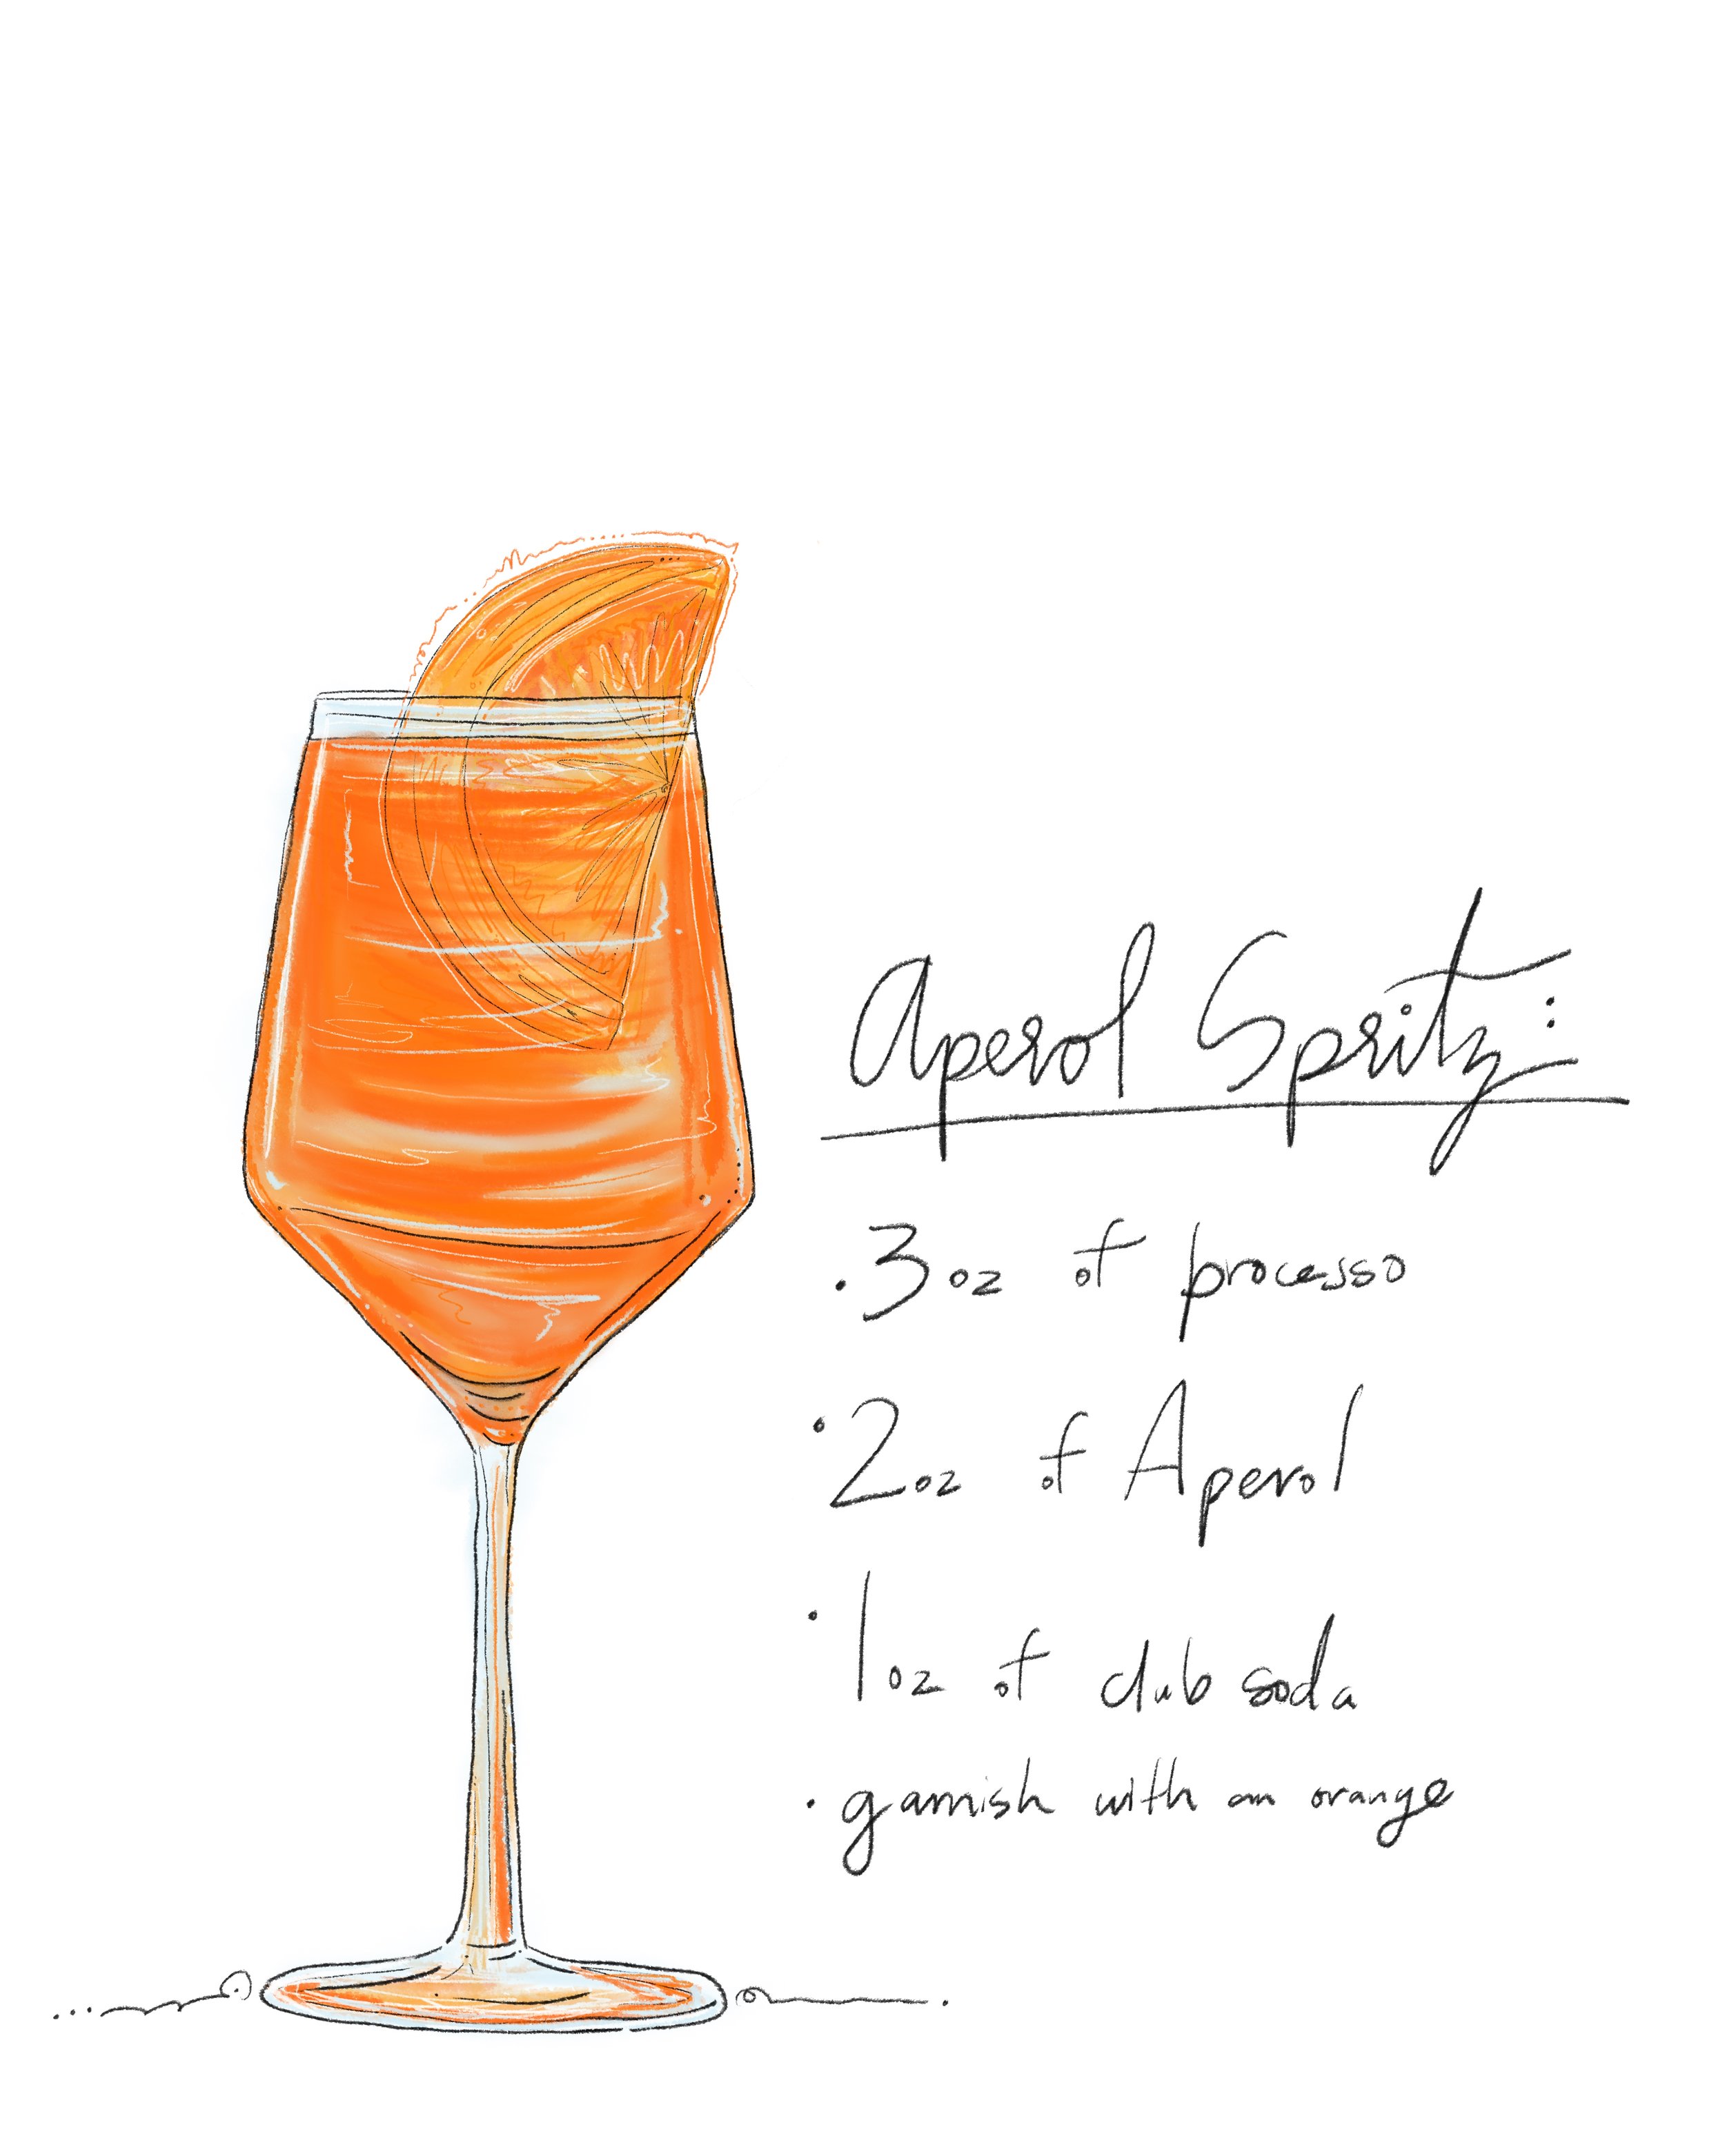 Aperol Spritz:
. 3 oz of processo
. 2 oz of Aperol
. 1 oz of club soda
. garnish with an orange